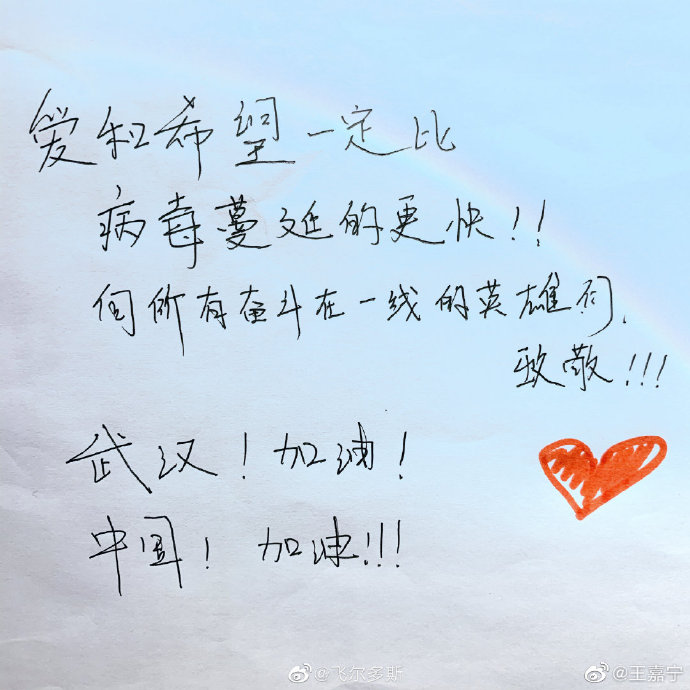 爱和希望一定比
病毒蔓延的更快!!
向所有奋斗在一线的英雄们,
致敬!!!
武汉!加油!
中国!加油!!!
@飞尔多斯
@王嘉宁